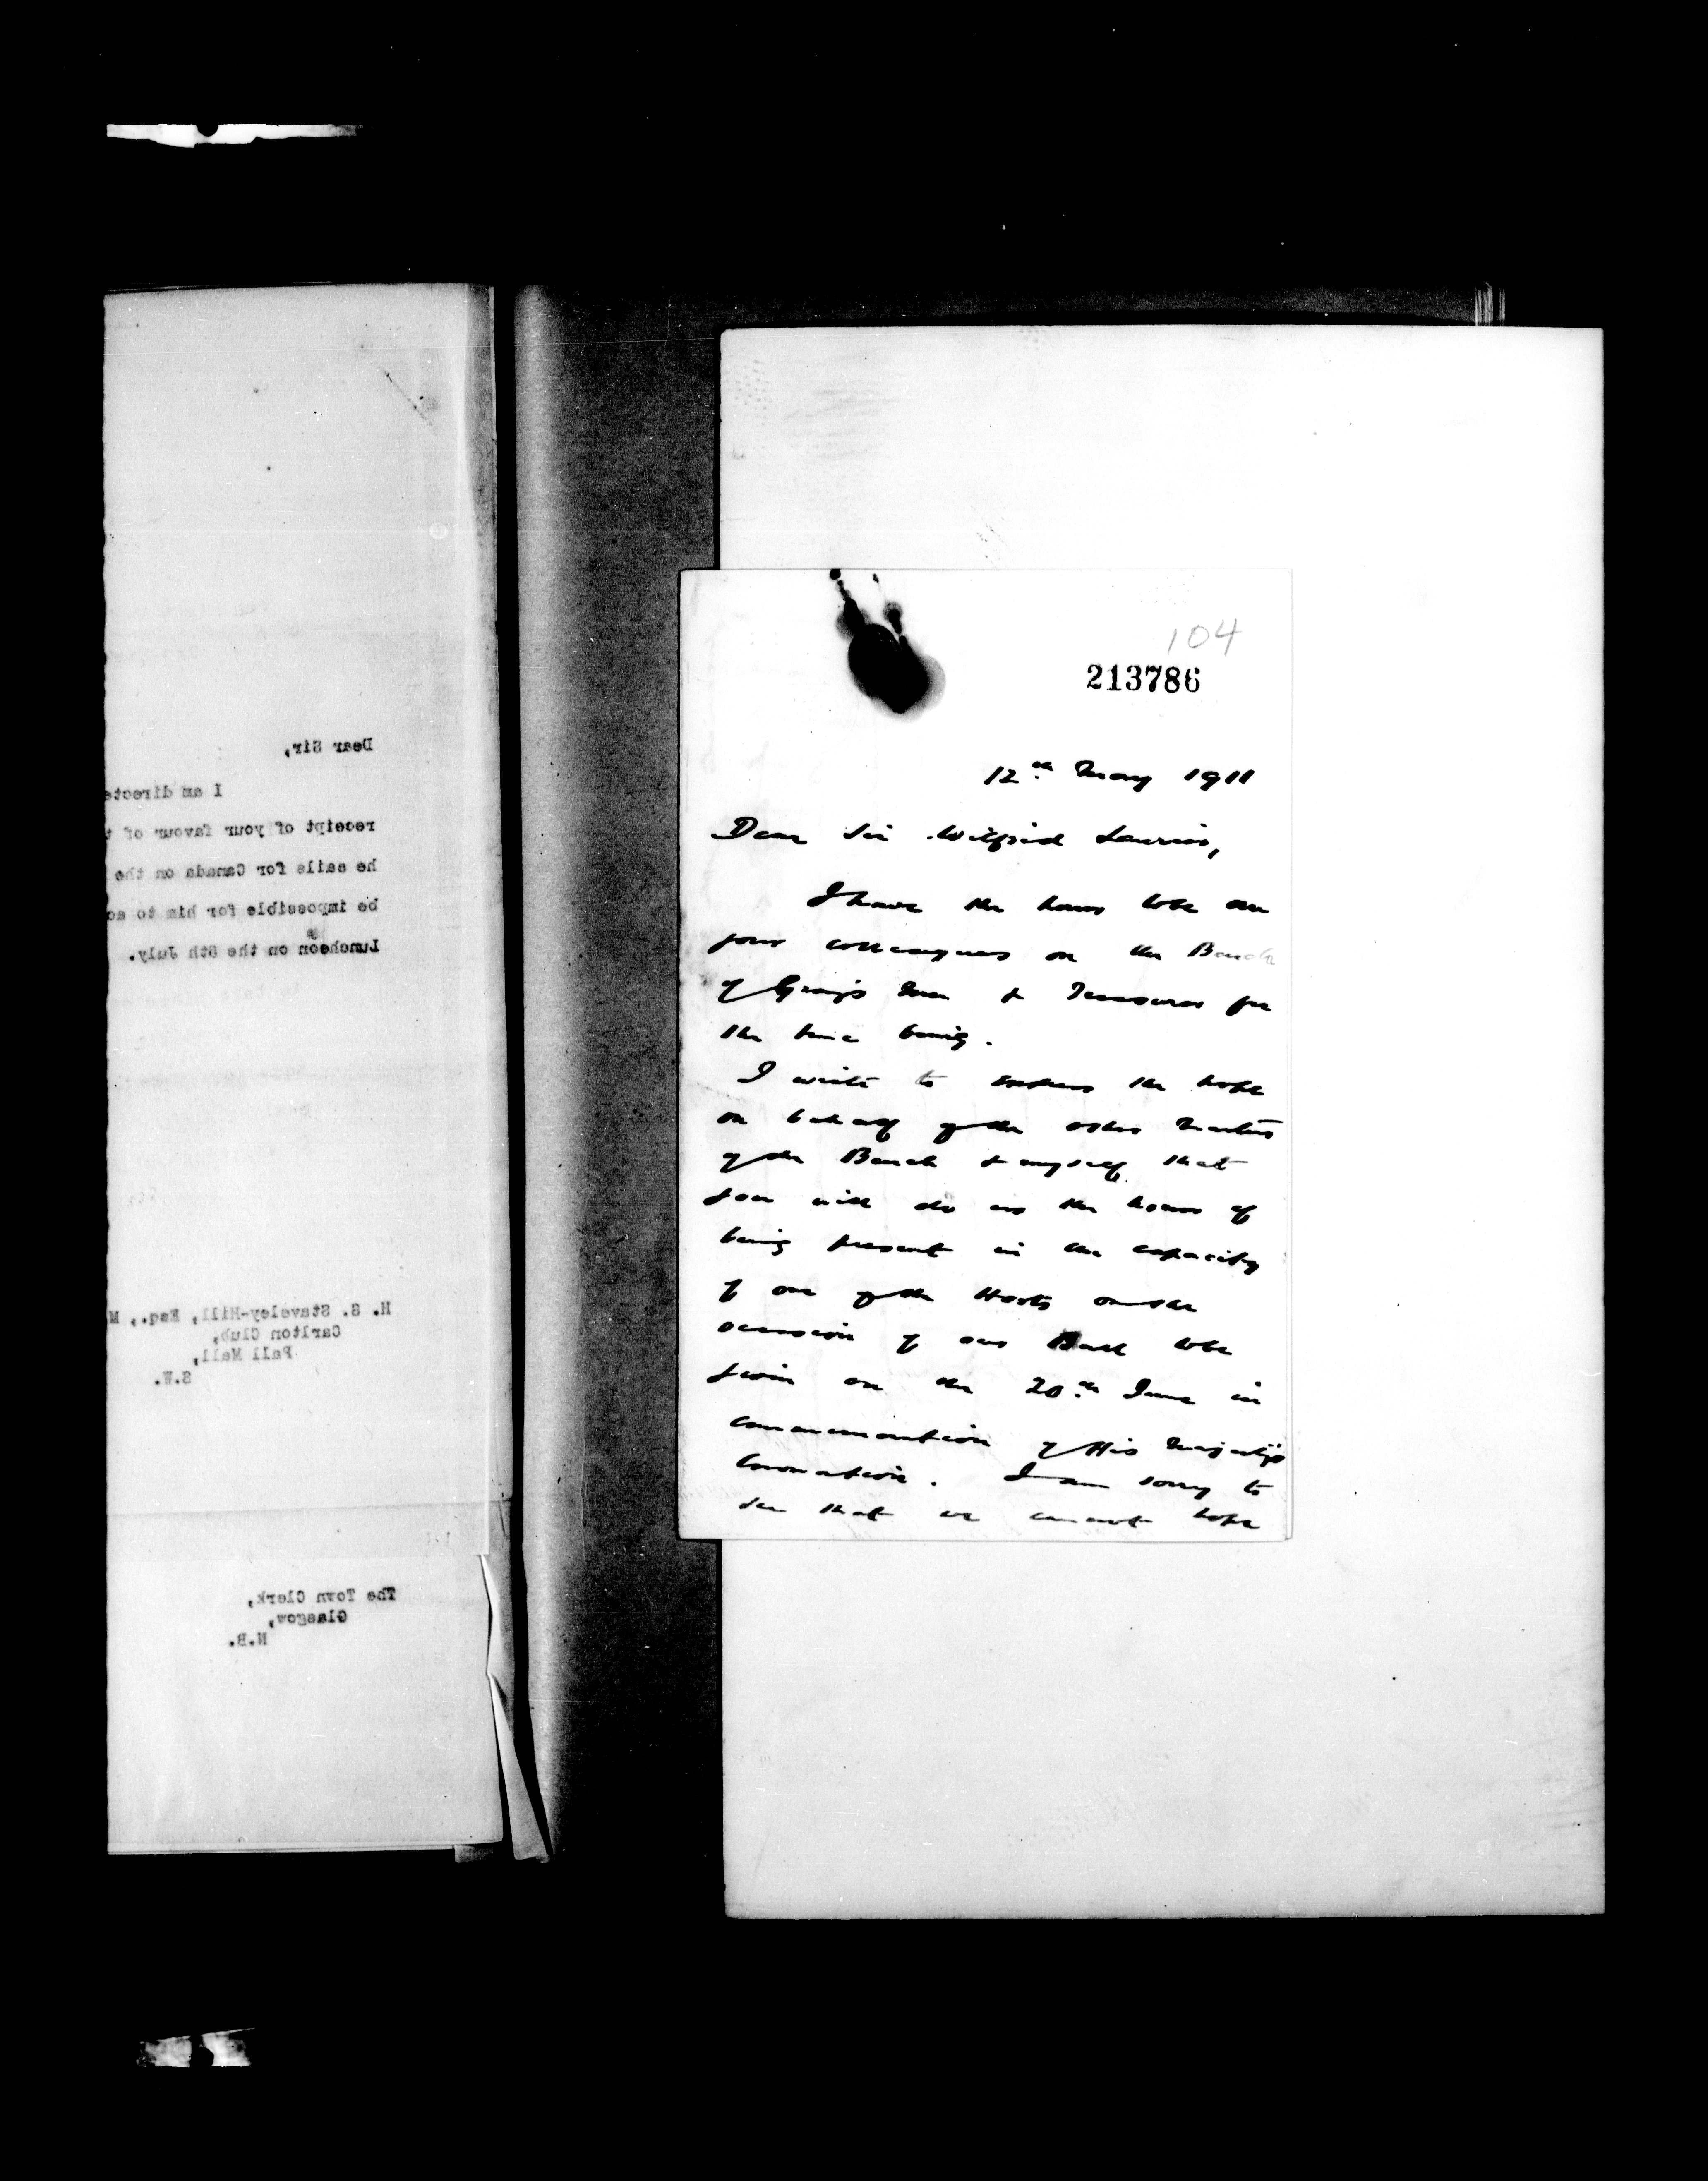 Dear Sir,
I am directe
receipt of your favour of t
he sails for Canada on the
be impossible for him to ac
Luncheon on the 8th July.
H. S. Staveley-Hill, Esq., M
Carlton Club,
Pall Mall,
S.W.
The Town Clerk,
Glasgow,
N.B.
104
213786
12th May 1911
Dear Sir Wilfrid Laurier,
I have the honor to be one
your colleagues on the Bench
of Gray's Inn & Treasurer for
the time being.
I write to express the hope
on behalf of the other Masters
of the Bench & myself that
you will do us the honor of
being present in the capacity
of one of the Hosts on the
occasion of our Ball to be
given on the 20th June in
commemoration of His Majesty's
Coronation. I am sorry to
see that we cannot hope